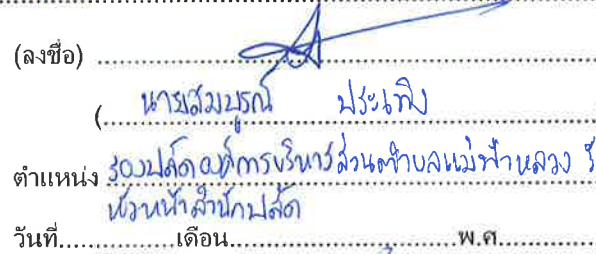 (ลงชื่อ)
(นายสมบูรณ์ ประเทิง
ตำแหน่ง รองปลัดองค์การบริหารส่วนตำบลแม่ฟ้าหลวง
หัวหน้าสำนักปลัด
วันที่..............เดือน................................พ.ศ..............